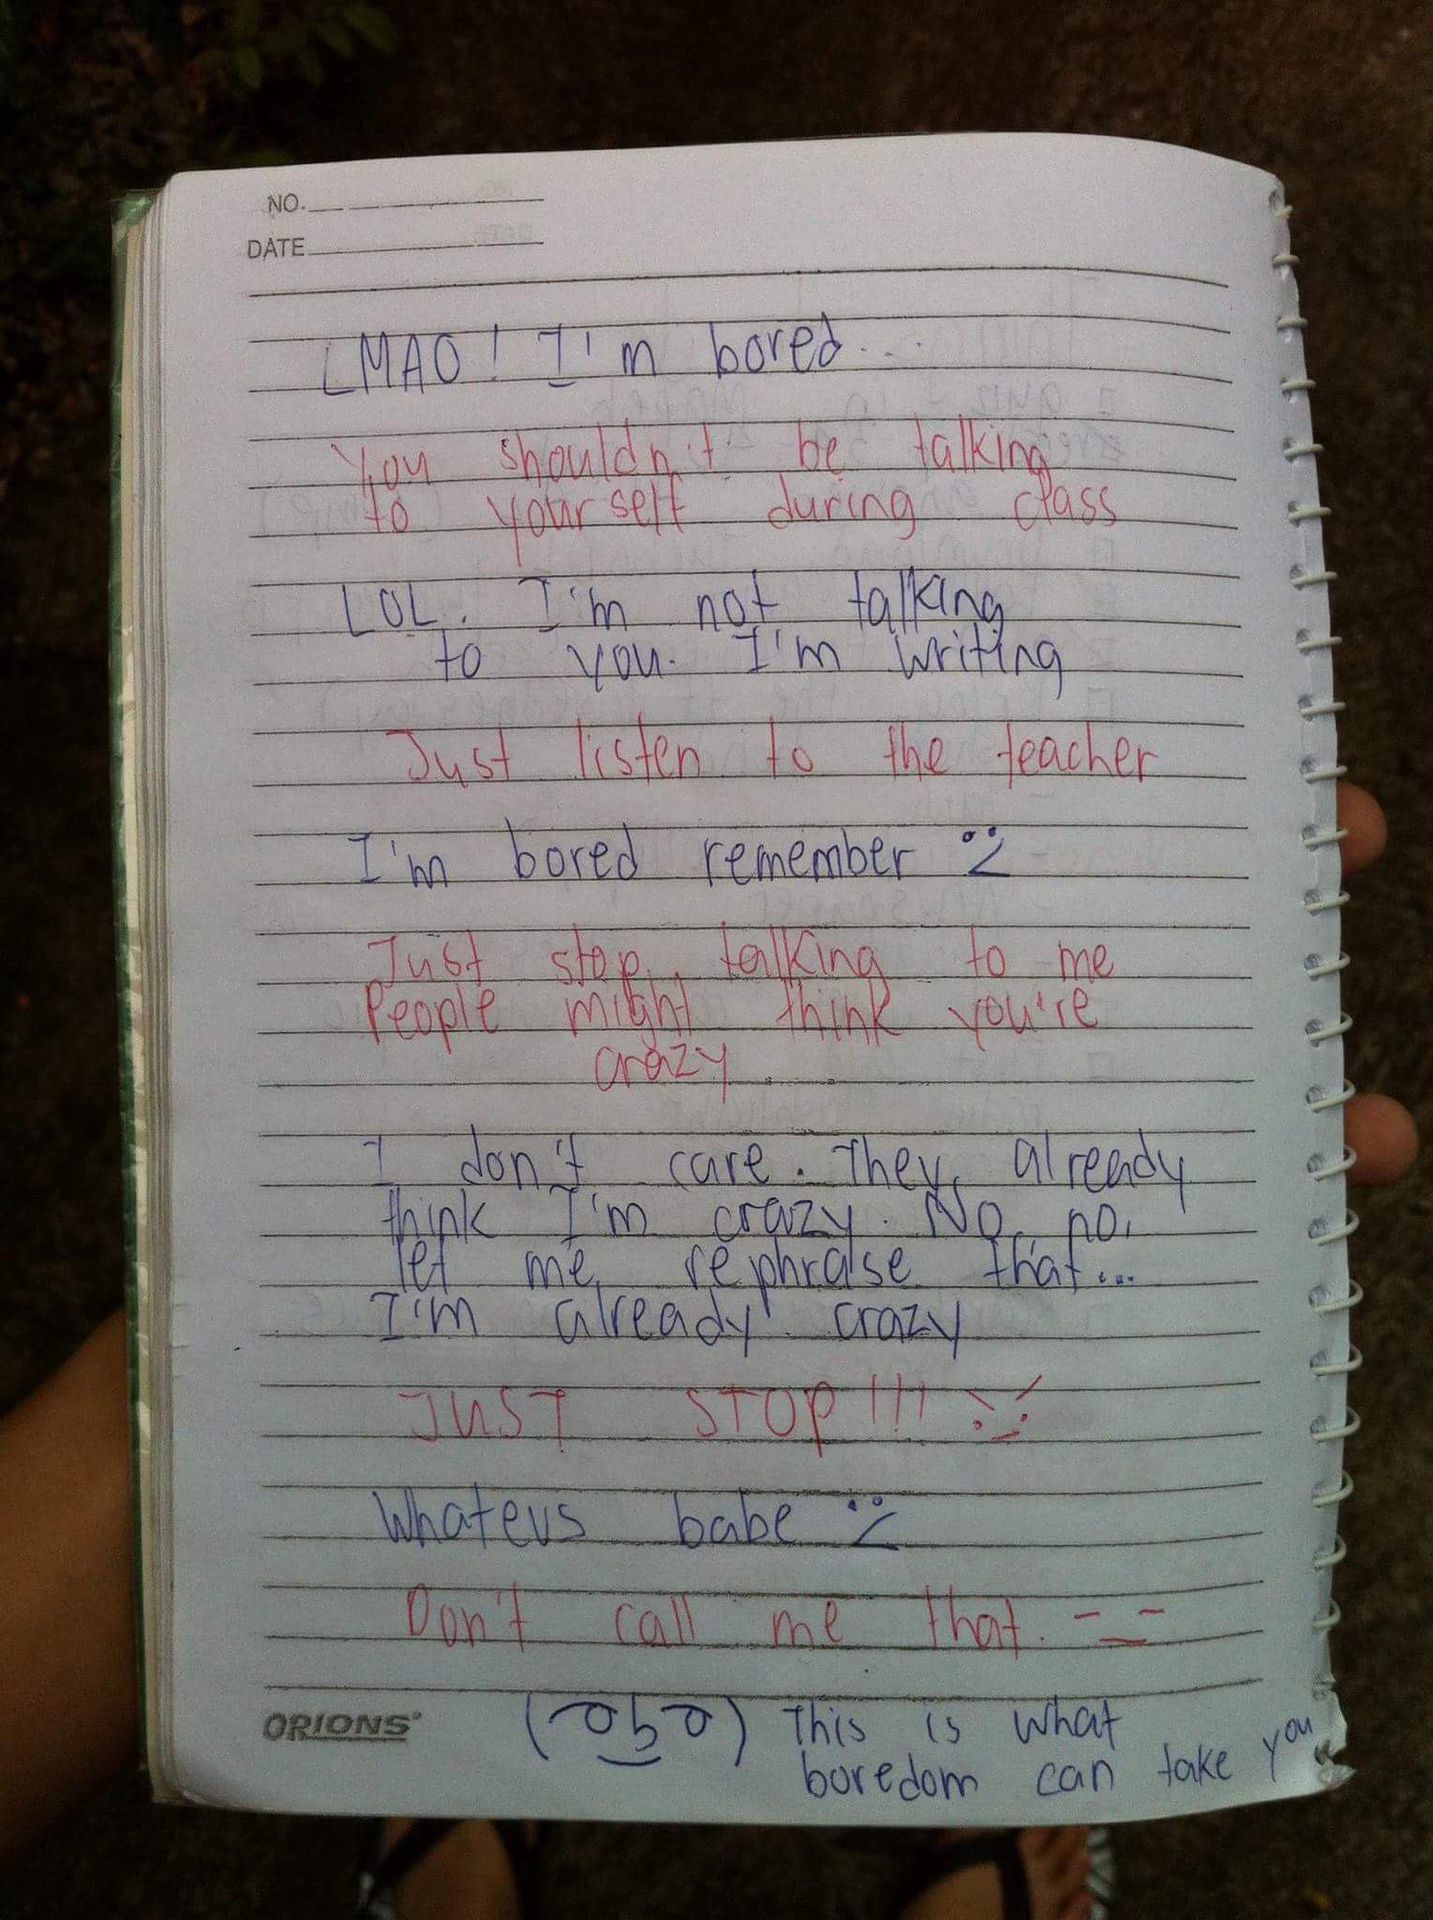 NO.
DATE
LMAO! I'm bored...
You shouldn't be talking
to yourself during class
LOL. I'm not talking
to you. I'm writing
Just listen to the teacher
I'm bored remember
Just stop talking to me
People might think you're
crazy.
I don't care. They already
think I'm crazy. No, no,
let me rephrase that...
I'm already crazy
JUST STOP!!!
Whatevs babe
Don't call me that. -_-
ORIONS
This is what
boredom can take you